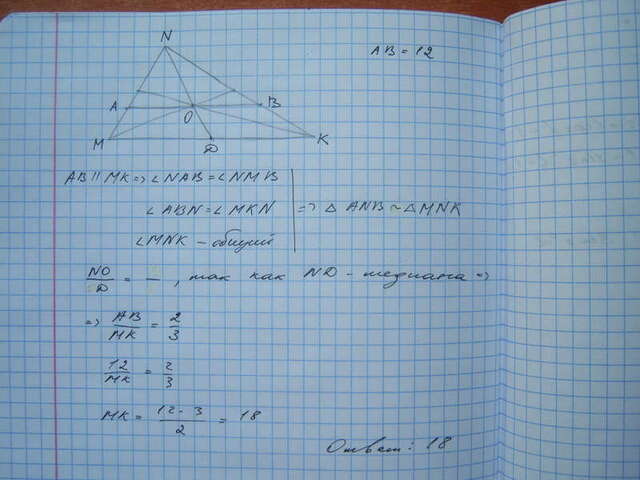 N
AB = 12
A
B
O
M
D
K
AB || MK => ∠NAB = ∠NMB
∠ABN = ∠MKN
=> △ ANB ~ △MNK
∠MNK – общий
NO / D = , так как ND – медиана =>
=> AB / MK = 2 / 3
12 / MK = 2 / 3
MK = 12 · 3 / 2 = 18
Ответ: 18